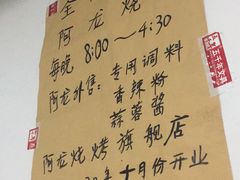 阿龙烧
每晚 8:00～4:30
阿龙外售：专用调料
香辣粉
蒜蓉酱
阿龙烧烤旗舰店
年十月份开业